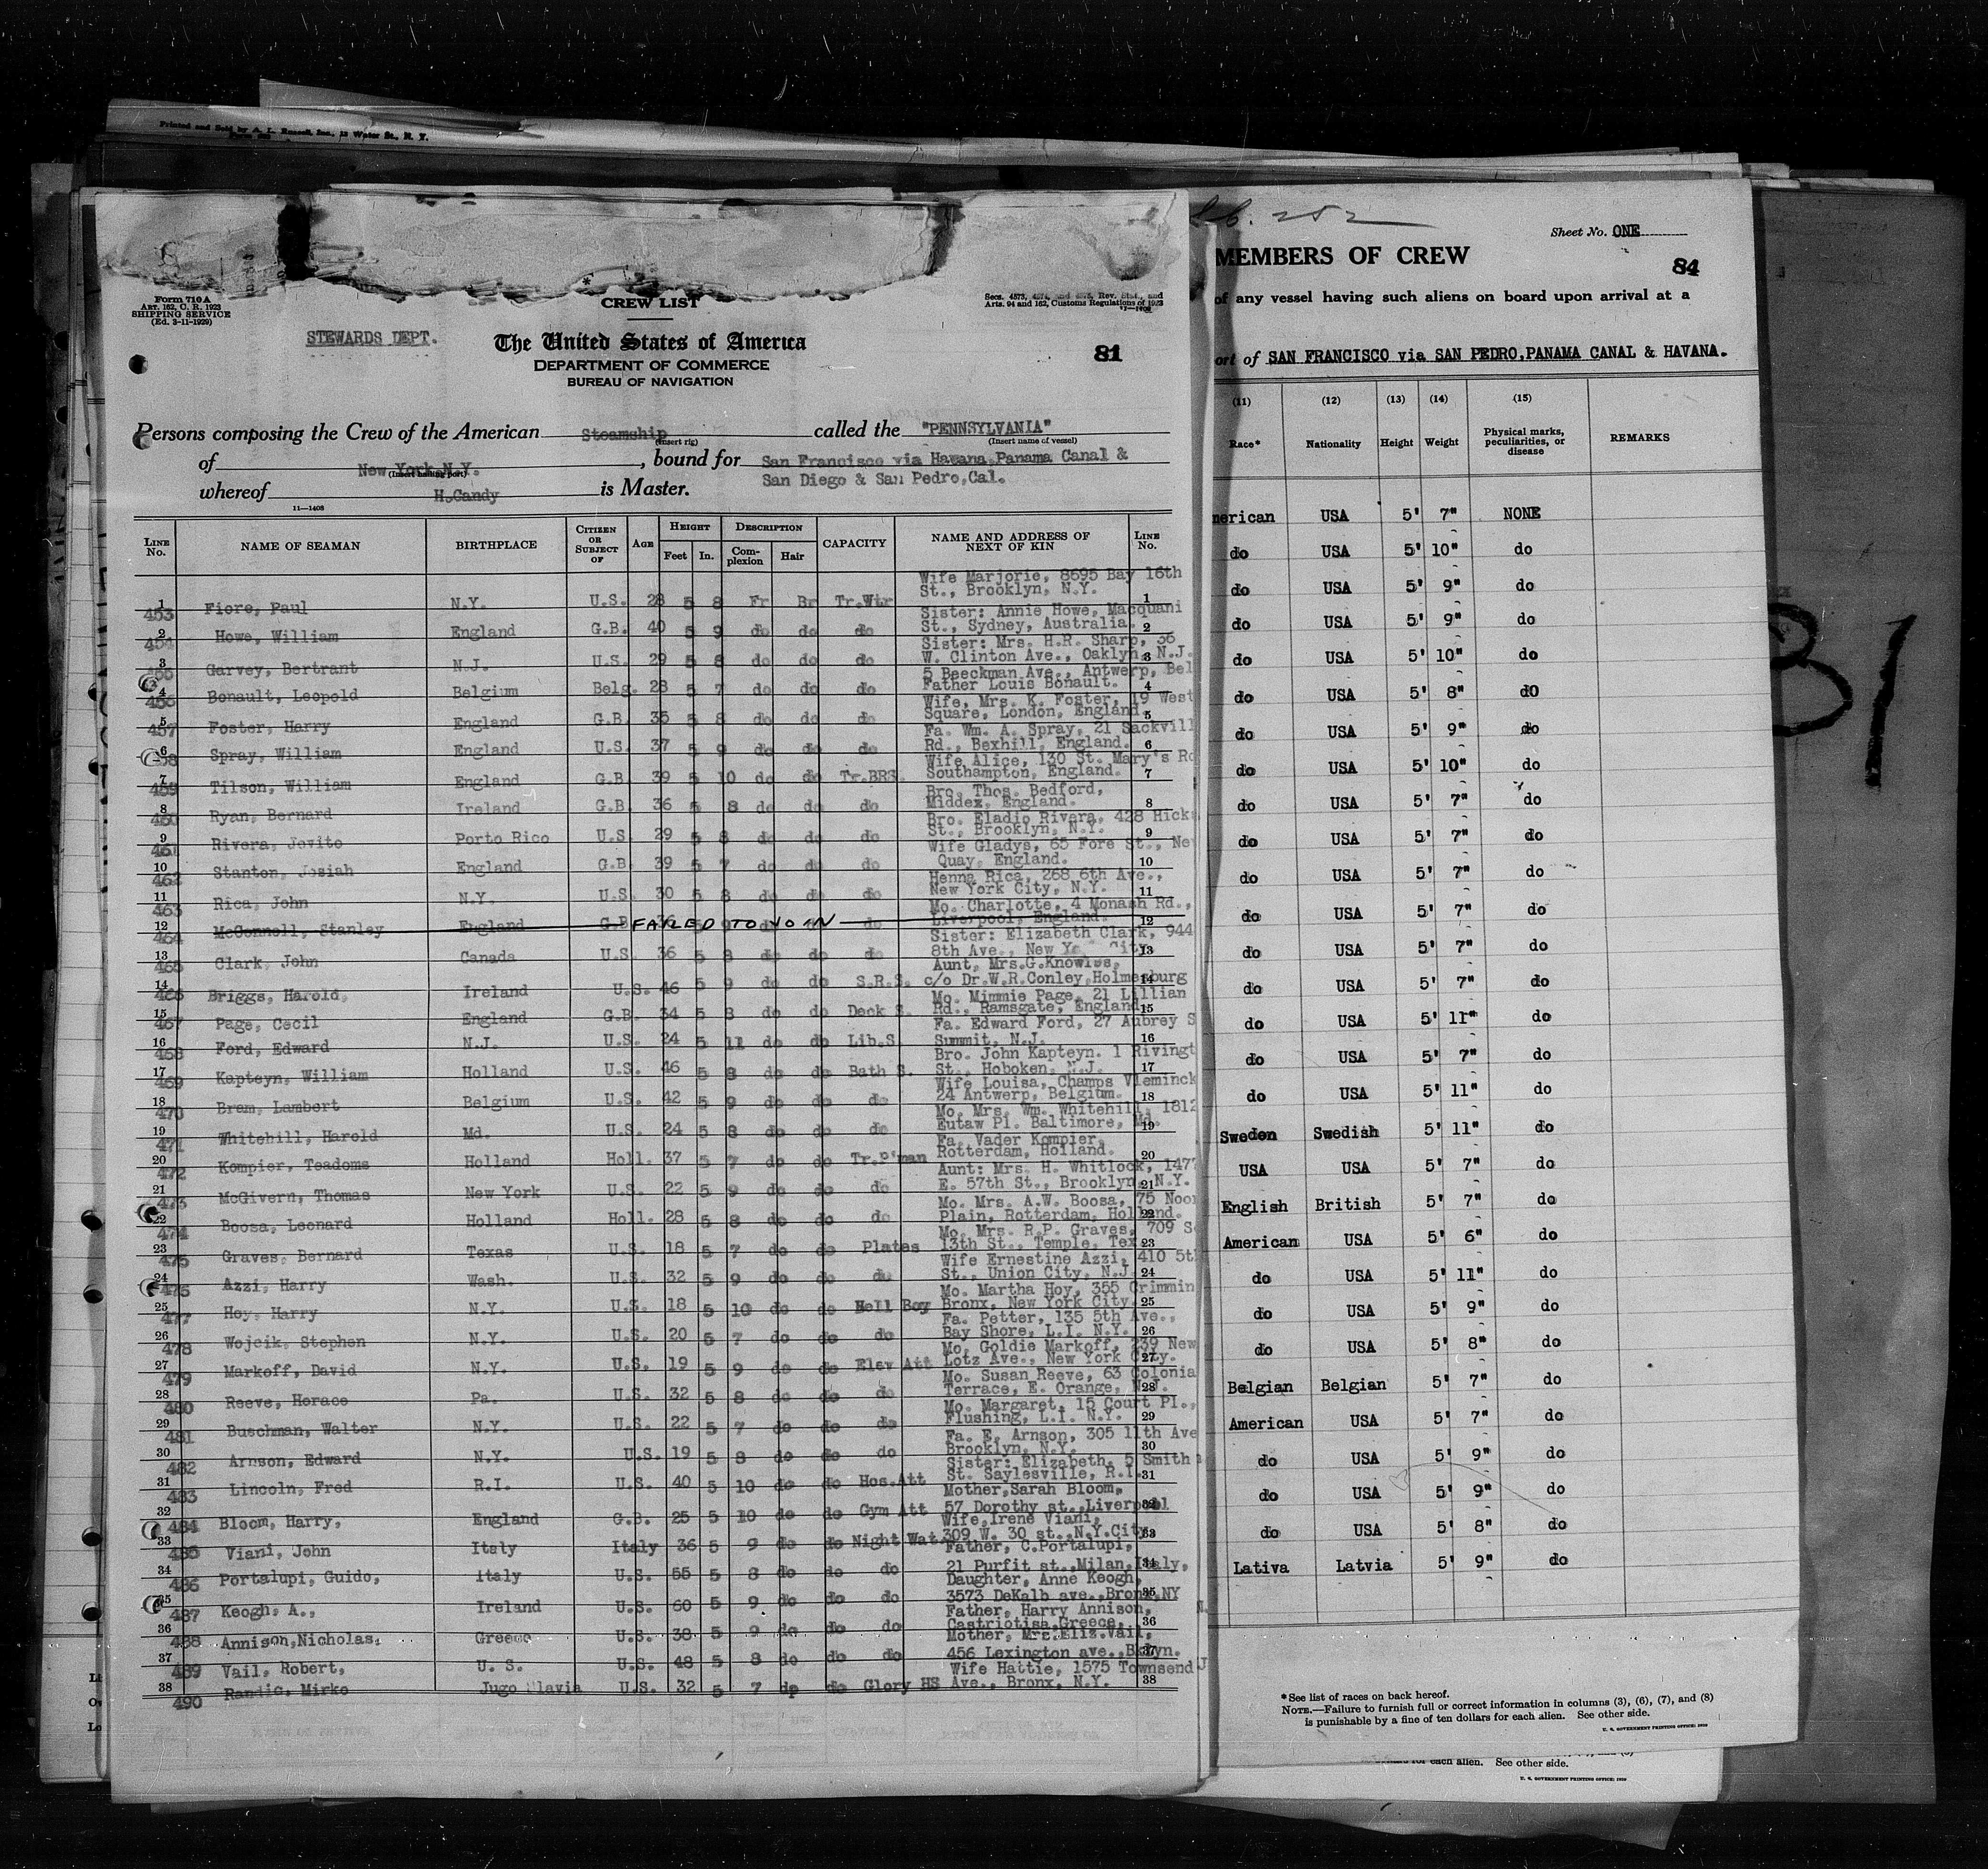 Printed and Sold by A. L. Russell, Inc., 12 Water St., N. Y.
Form 710 A
ART. 162, C. R. 1923
SHIPPING SERVICE
(Ed. 3-11-1929)
CREW LIST
Secs. 4573, 4574, and 4575, Rev. Stat., and
Arts. 94 and 162, Customs Regulations of 1923
11—1408
STEWARDS DEPT.
The United States of America
DEPARTMENT OF COMMERCE
BUREAU OF NAVIGATION
81
Persons composing the Crew of the American Steamship called the "PENNSYLVANIA"
(Insert rig) (Insert name of vessel)
of New York N.Y., bound for San Francisco via Havana, Panama Canal &
(Insert hailing port)
San Diego & San Pedro, Cal.
whereof H. Candy is Master.
11—1408
LINE No. NAME OF SEAMAN BIRTHPLACE CITIZEN OR SUBJECT OF AGE HEIGHT Feet In. DESCRIPTION Complexion Hair CAPACITY NAME AND ADDRESS OF NEXT OF KIN LINE No.
Wife Marjorie, 8695 Bay 16th
1 453 Fiore, Paul N.Y. U.S. 28 5 8 Fr Br Tr.Wtr St., Brooklyn, N.Y. 1
Sister: Annie Howe, Macquani
2 454 Howe, William England G.B. 40 5 9 do do do St., Sydney, Australia. 2
Sister: Mrs. H.R. Sharp, 36
3 455 Garvey, Bertrant N.J. U.S. 29 5 8 do do do W. Clinton Ave., Oaklyn, N.J. 3
5 Beeckman Ave., Antwerp, Bel
4 456 Bonault, Leopold Belgium Belg. 28 5 7 do do do Father Louis Bonault. 4
Wife, Mrs. K. Foster, 19 West
5 457 Foster, Harry England G.B. 35 5 8 do do do Square, London, England. 5
Fa. Wm. A. Spray, 21 Sackvill
6 58 Spray, William England U.S. 37 5 9 do do do Rd., Bexhill, England. 6
Wife Alice, 130 St. Mary's Rd
7 459 Tilson, William England G.B. 39 5 10 do do Tr.BRS. Southampton, England. 7
Bro. Thos. Bedford,
8 460 Ryan, Bernard Ireland G.B. 36 5 8 do do do Middex, England. 8
Bro. Eladio Rivera, 428 Hick
9 461 Rivera, Jovito Porto Rico U.S. 29 5 8 do do do St., Brooklyn, N.Y. 9
Wife Gladys, 65 Fore St., New
10 462 Stanton, Josiah England G.B. 39 5 7 do do do Quay, England. 10
Henna Rica, 268 6th Ave.,
11 463 Rica, John N.Y. U.S. 30 5 8 do do do New York City, N.Y. 11
Mo. Charlotte, 4 Monash Rd.,
12 464 McConnell, Stanley England G.B. 36 FAILED TO JOIN do Liverpool, England. 12
Sister: Elizabeth Clark, 944
13 465 Clark, John Canada U.S. 36 5 8 do do do 8th Ave., New York City 13
Aunt, Mrs.G.Knowles,
14 466 Briggs, Harold, Ireland U.S. 46 5 9 do do S.R.S. c/o Dr.W.R.Conley,Holmesburg 14
Mo. Mimmie Page, 21 Lillian
15 467 Page, Cecil England G.B. 34 5 8 do do Deck S. Rd., Ramsgate, England 15
Fa. Edward Ford, 27 Aubrey S
16 468 Ford, Edward N.J. U.S. 24 5 11 do do Lib.S. Summit, N.J. 16
Bro. John Kapteyn. 1 Rivingt
17 469 Kapteyn, William Holland U.S. 46 5 8 do do Bath S. St., Hoboken, N.J. 17
Wife Louisa, Champs Vleminck
18 470 Bram, Lambert Belgium U.S. 42 5 9 do do do 24 Antwerp, Belgium. 18
Mo. Mrs. Wm. Whitehill, 1812
19 471 Whitehill, Harold Md. U.S. 24 5 8 do do do Eutaw Pl. Baltimore, Md. 19
Fa. Vader Kompier,
20 472 Kompier, Teadoms Holland Holl. 37 5 7 do do Tr.P'man Rotterdam, Holland. 20
Aunt: Mrs. H. Whitlock, 147
21 473 McGivern, Thomas New York U.S. 22 5 9 do do do E. 57th St., Brooklyn, N.Y. 21
Mo. Mrs. A.W. Boosa, 75 Noor
22 474 Boosa, Leonard Holland Holl. 28 5 8 do do do Plain, Rotterdam, Holland. 22
Mo. Mrs. R.P. Graves, 709 S
23 475 Graves, Bernard Texas U.S. 18 5 7 do do Plates 13th St., Temple, Tex 23
Wife Ernestine Azzi, 410 5t
24 476 Azzi, Harry Wash. U.S. 32 5 9 do do do St., Union City, N.J. 24
Mo. Martha Hoy, 355 Crimmin
25 477 Hoy, Harry N.Y. U.S. 18 5 10 do do Bell Boy Bronx, New York City. 25
Fa. Petter, 135 5th Ave.,
26 478 Wojcik, Stephen N.Y. U.S. 20 5 7 do do do Bay Shore, L.I. N.Y. 26
Mo. Goldie Markoff, 239 New
27 479 Markoff, David N.Y. U.S. 19 5 9 do do Elev Att Lotz Ave., New York City. 27
Mo. Susan Reeve, 63 Colonia
28 480 Reeve, Horace Pa. U.S. 32 5 8 do do do Terrace, E. Orange, N.J. 28
Mo. Margaret, 15 Court Pl.,
29 481 Buschman, Walter N.Y. U.S. 22 5 7 do do do Flushing, L.I. N.Y. 29
Fa. E. Arnson, 305 11th Ave
30 482 Arnson, Edward N.Y. U.S. 19 5 8 do do do Brooklyn, N.Y. 30
Sister: Elizabeth, 5 Smith
31 483 Lincoln, Fred R.I. U.S. 40 5 10 do do Hos.Att St. Saylesville, R.I. 31
Mother,Sarah Bloom,
32 484 Bloom, Harry, England G.B. 25 5 10 do do Gym Att 57 Dorothy st.,Liverpool 32
Wife,Irene Viani,
33 485 Viani, John Italy Italy 36 5 9 do do Night Wat. 309 W. 30 st.,N.Y.City 33
Father, C.Portalupi,
34 486 Portalupi, Guido, Italy U.S. 55 5 8 do do do 21 Purfit st.,Milan,Italy, 34
Daughter, Anne Keogh,
35 487 Keogh, A., Ireland U.S. 60 5 9 do do do 3573 DeKalb ave.,Bronx,NY 35
Father, Harry Annison,
36 488 Annison,Nicholas, Greece U.S. 38 5 9 do do do Castriotisa,Greece, 36
Mother, Mrs.Eliz.Vail,
37 489 Vail, Robert, U. S. U.S. 48 5 8 do do do 456 Lexington ave.,Bklyn. 37
Wife Hattie, 1575 Townsend
38 490 Randic, Mirko Jugo Slavia U.S. 32 5 7 dp do Glory HS Ave., Bronx, N.Y. 38
Sheet No. ONE
MEMBERS OF CREW
84
of any vessel having such aliens on board upon arrival at a
ort of SAN FRANCISCO via SAN PEDRO,PANAMA CANAL & HAVANA.
(11) (12) (13) (14) (15)
Race* Nationality Height Weight Physical marks, peculiarities, or disease REMARKS
merican USA 5' 7" NONE
do USA 5' 10" do
do USA 5' 9" do
do USA 5' 9" do
do USA 5' 10" do
do USA 5' 8" dO
do USA 5' 9" do
do USA 5' 10" do
do USA 5' 7" do
do USA 5' 7" do
do USA 5' 7" do
do USA 5' 7" do
do USA 5' 7" do
do USA 5' 7" do
do USA 5' 11" do
do USA 5' 7" do
do USA 5' 11" do
Sweden Swedish 5' 11" do
USA USA 5' 7" do
English British 5' 7" do
American USA 5' 6" do
do USA 5' 11" do
do USA 5' 9" do
do USA 5' 8" do
Belgian Belgian 5' 7" do
American USA 5' 7" do
do USA 5' 9" do
do USA 5' 9" do
do USA 5' 8" do
Lativa Latvia 5' 9" do
*See list of races on back hereof.
NOTE.—Failure to furnish full or correct information in columns (3), (6), (7), and (8)
is punishable by a fine of ten dollars for each alien. See other side.
U. S. GOVERNMENT PRINTING OFFICE: 1929
for each alien. See other side.
U. S. GOVERNMENT PRINTING OFFICE: 1929
81